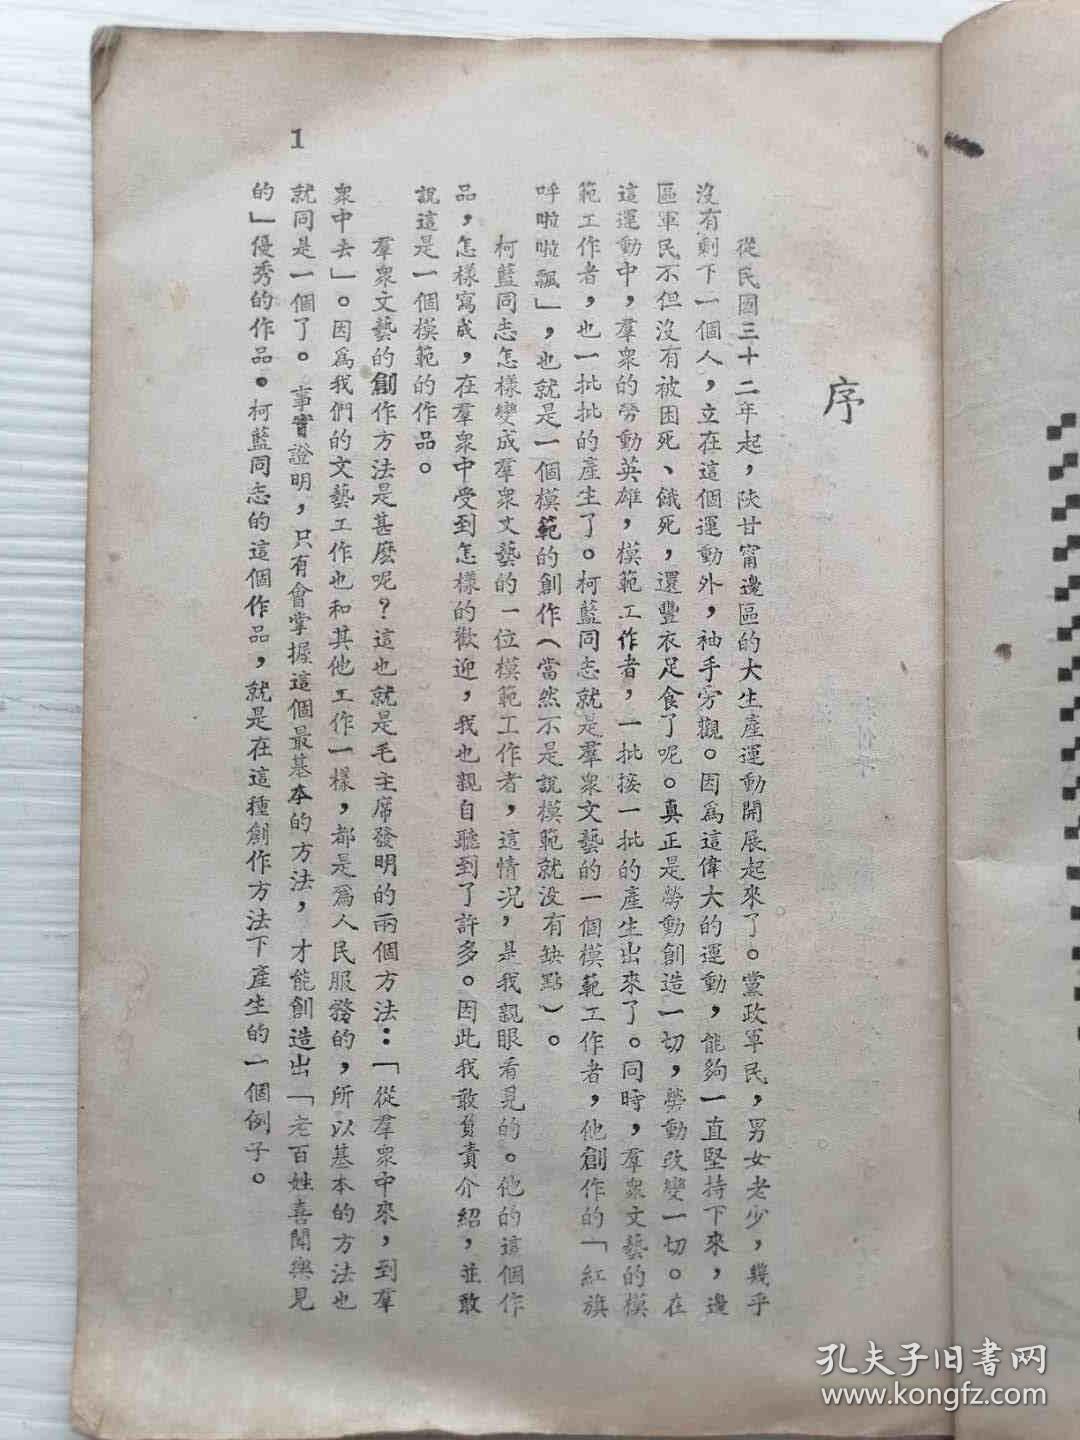 序
從民國三十二年起，陝甘甯邊區的大生產運動開展起來了。黨政軍民，男女老少，幾乎
沒有剩下一個人，立在這個運動外，袖手旁觀。因爲這偉大的運動，能夠一直堅持下來，邊
區軍民不但沒有被困死、餓死，還豐衣足食了呢。真正是勞動創造一切，勞動改變一切。在
這運動中，羣衆的勞動英雄，模範工作者，一批接一批的產生出來了。同時，羣衆文藝的模
範工作者，也一批批的產生了。柯藍同志就是羣衆文藝的一個模範工作者，他創作的「紅旗
呼啦啦飄」，也就是一個模範的創作（當然不是說模範就没有缺點）。
柯藍同志怎樣變成羣衆文藝的一位模範工作者，這情況，是我親眼看見的。他的這個作
品，怎樣寫成，在羣衆中受到怎樣的歡迎，我也親自聽到了許多。因此我敢負責介紹，並敢
說這是一個模範的作品。
羣衆文藝的創作方法是甚麽呢？這也就是毛主席發明的兩個方法：「從羣衆中來，到羣
衆中去」。因爲我們的文藝工作也和其他工作一樣，都是爲人民服務的，所以基本的方法也
就同是一個了。事實證明，只有會掌握這個最基本的方法，才能創造出「老百姓喜聞樂見
的」優秀的作品。柯藍同志的這個作品，就是在這種創作方法下產生的一個例子。
1
孔夫子旧書网
www.kongfz.com